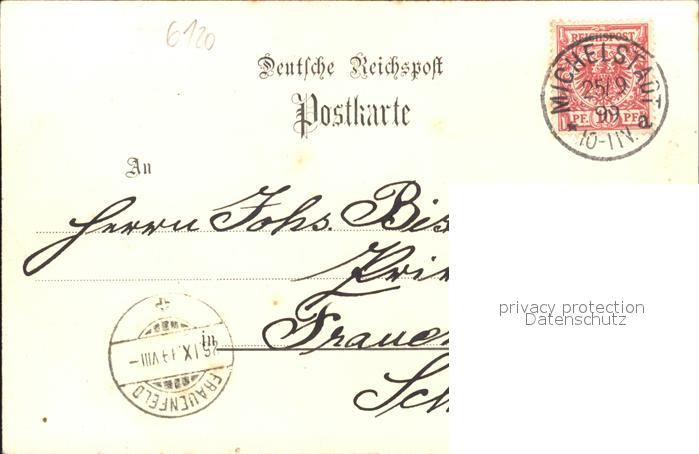 6120
Deutsche Reichspost
Postkarte
An
REICHSPOST
PF. 10 PF.
MICHELSTADT
25/9
99
*10-11V. a
Herrn Johs. Bis
in
Frauen
Sch
FRAUENFELD
IX. VIII-
privacy protection
Datenschutz